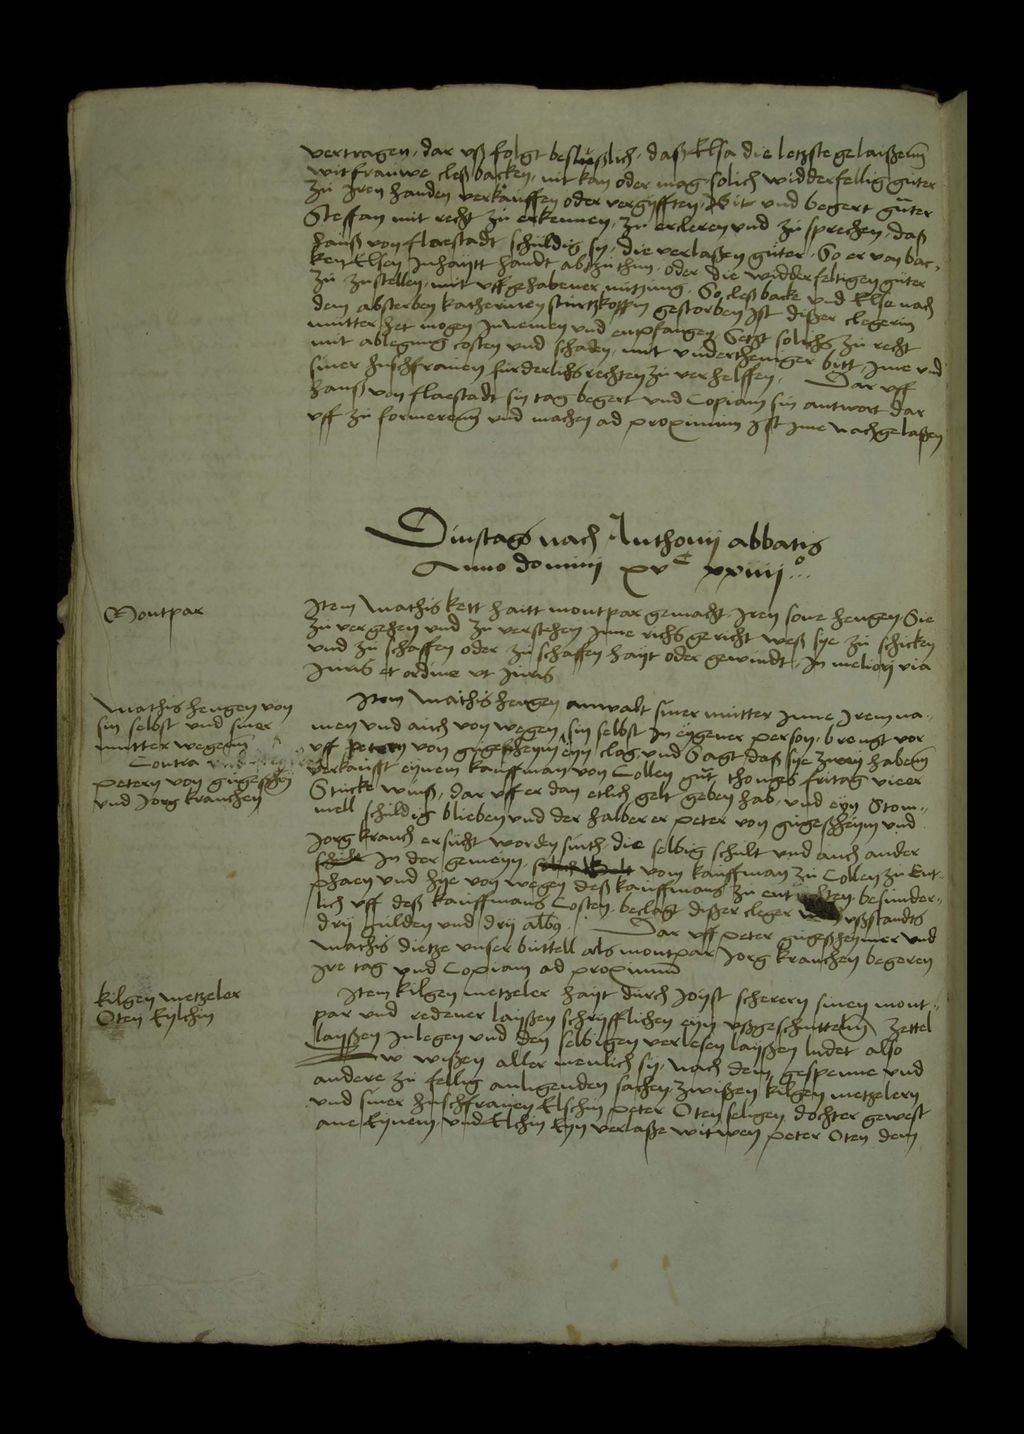 vertragen, dar uß folgt besließlich, daß Elsa die letzste gelaißenn
witfrauwe cleß backen, nit kan oder mag solich widderfellig guter
zu Iren handen verkauffen oder vergifften, Bit und begert
Steffan mit recht zu erkennen, zu ercleren und zu sprechen, daß
hanß von flaestadt schuldig sy, die verlaßen guter, So er von bac-
ken Elsen Inhaijtt handt abzuthun, oder die widderfelligen guter
zu zustellen, mit uffgehabener nutzung, So cleß backe und Else nach
dem absterben katherinen gestorben Ist dißer clegerin
mutter het mogen Innemen und empfangen, Setzt solichs zu recht
mit ablegung costen und schaden, mit undertheniger bitt, Ime und
siner hußfrauwen furderlichs rechten zu verhelffen, Dar uff
hanß von flaestadt sin tag begert und Copiam sin antwort dar
uff zu formerenn und machen ad proximum Ist Ime nachgelaßen
Dinstags nach Anthonij abbatis
Anno domini xvc xxiiij°
Montpar
Item Mathis kett haitt montpar gemacht, Iren sone hengen Sie
zu vergehen und zu verstehen Inne richs gericht weß sye zu schicken
und zu schaffen oder zu schaffen hayt oder gewindt, In meliori via
Juris et ordine ut Juris
Mathis hengen von
sin selbst und siner
mutter wegenn
Contra
petern von gugeßheym
und Jorg krauchen
Item Mathis hengen anwalt siner mutter Inne Irem na-
men und auch von wegen sin selbst In eygener person, brengt vor
uff petern von gugeßheym eyn clag, und Sagt, daß sye Inen habenn
verkaufft eynem kauffman von Collen gut, thonges fritag vieer
Stucke winß, dar uff er dan etlich gelt geben hab, und eyn Stom-
mell schuldig blieben und der halber er peter von gugeßheym und
Jorg krauch ersucht worden sinth, die selbig schult und auch ander
In der gemeyn, vom kauffman zu Collen zu Ent-
phaen und hye von wegen deß kauffmans zu entrichten, besunder-
lich uff deß kauffmans Costen, beclagt dißer cleger ußstandts
drij gulden und drij alb9. Dar uff peter gugeßheymer und
Mathis dietze unser buttell als montpar Jorg krauchen begeren
Ire tag und Copiam ad proximum
kilgen metzeler
Oten Eylchin
Item kilgen metzeler hayt durch Joist scherern sinen mont-
par und redener laijßen schrifftlichen eyn ußgeschnittenn Zettel
laijßen Inlegen und den selbigen verlesen laijßen ludet also
Zu wißen aller menlich sy, Nach dem gespenne und
andere zu fellig anligenden sachen zwißen kilgen metzelern
und siner hußfrauen Elschin peter Oten seligen dochter gewest
ane Eynem, und Elchin Eyn verlaße witwen peter Oten dem